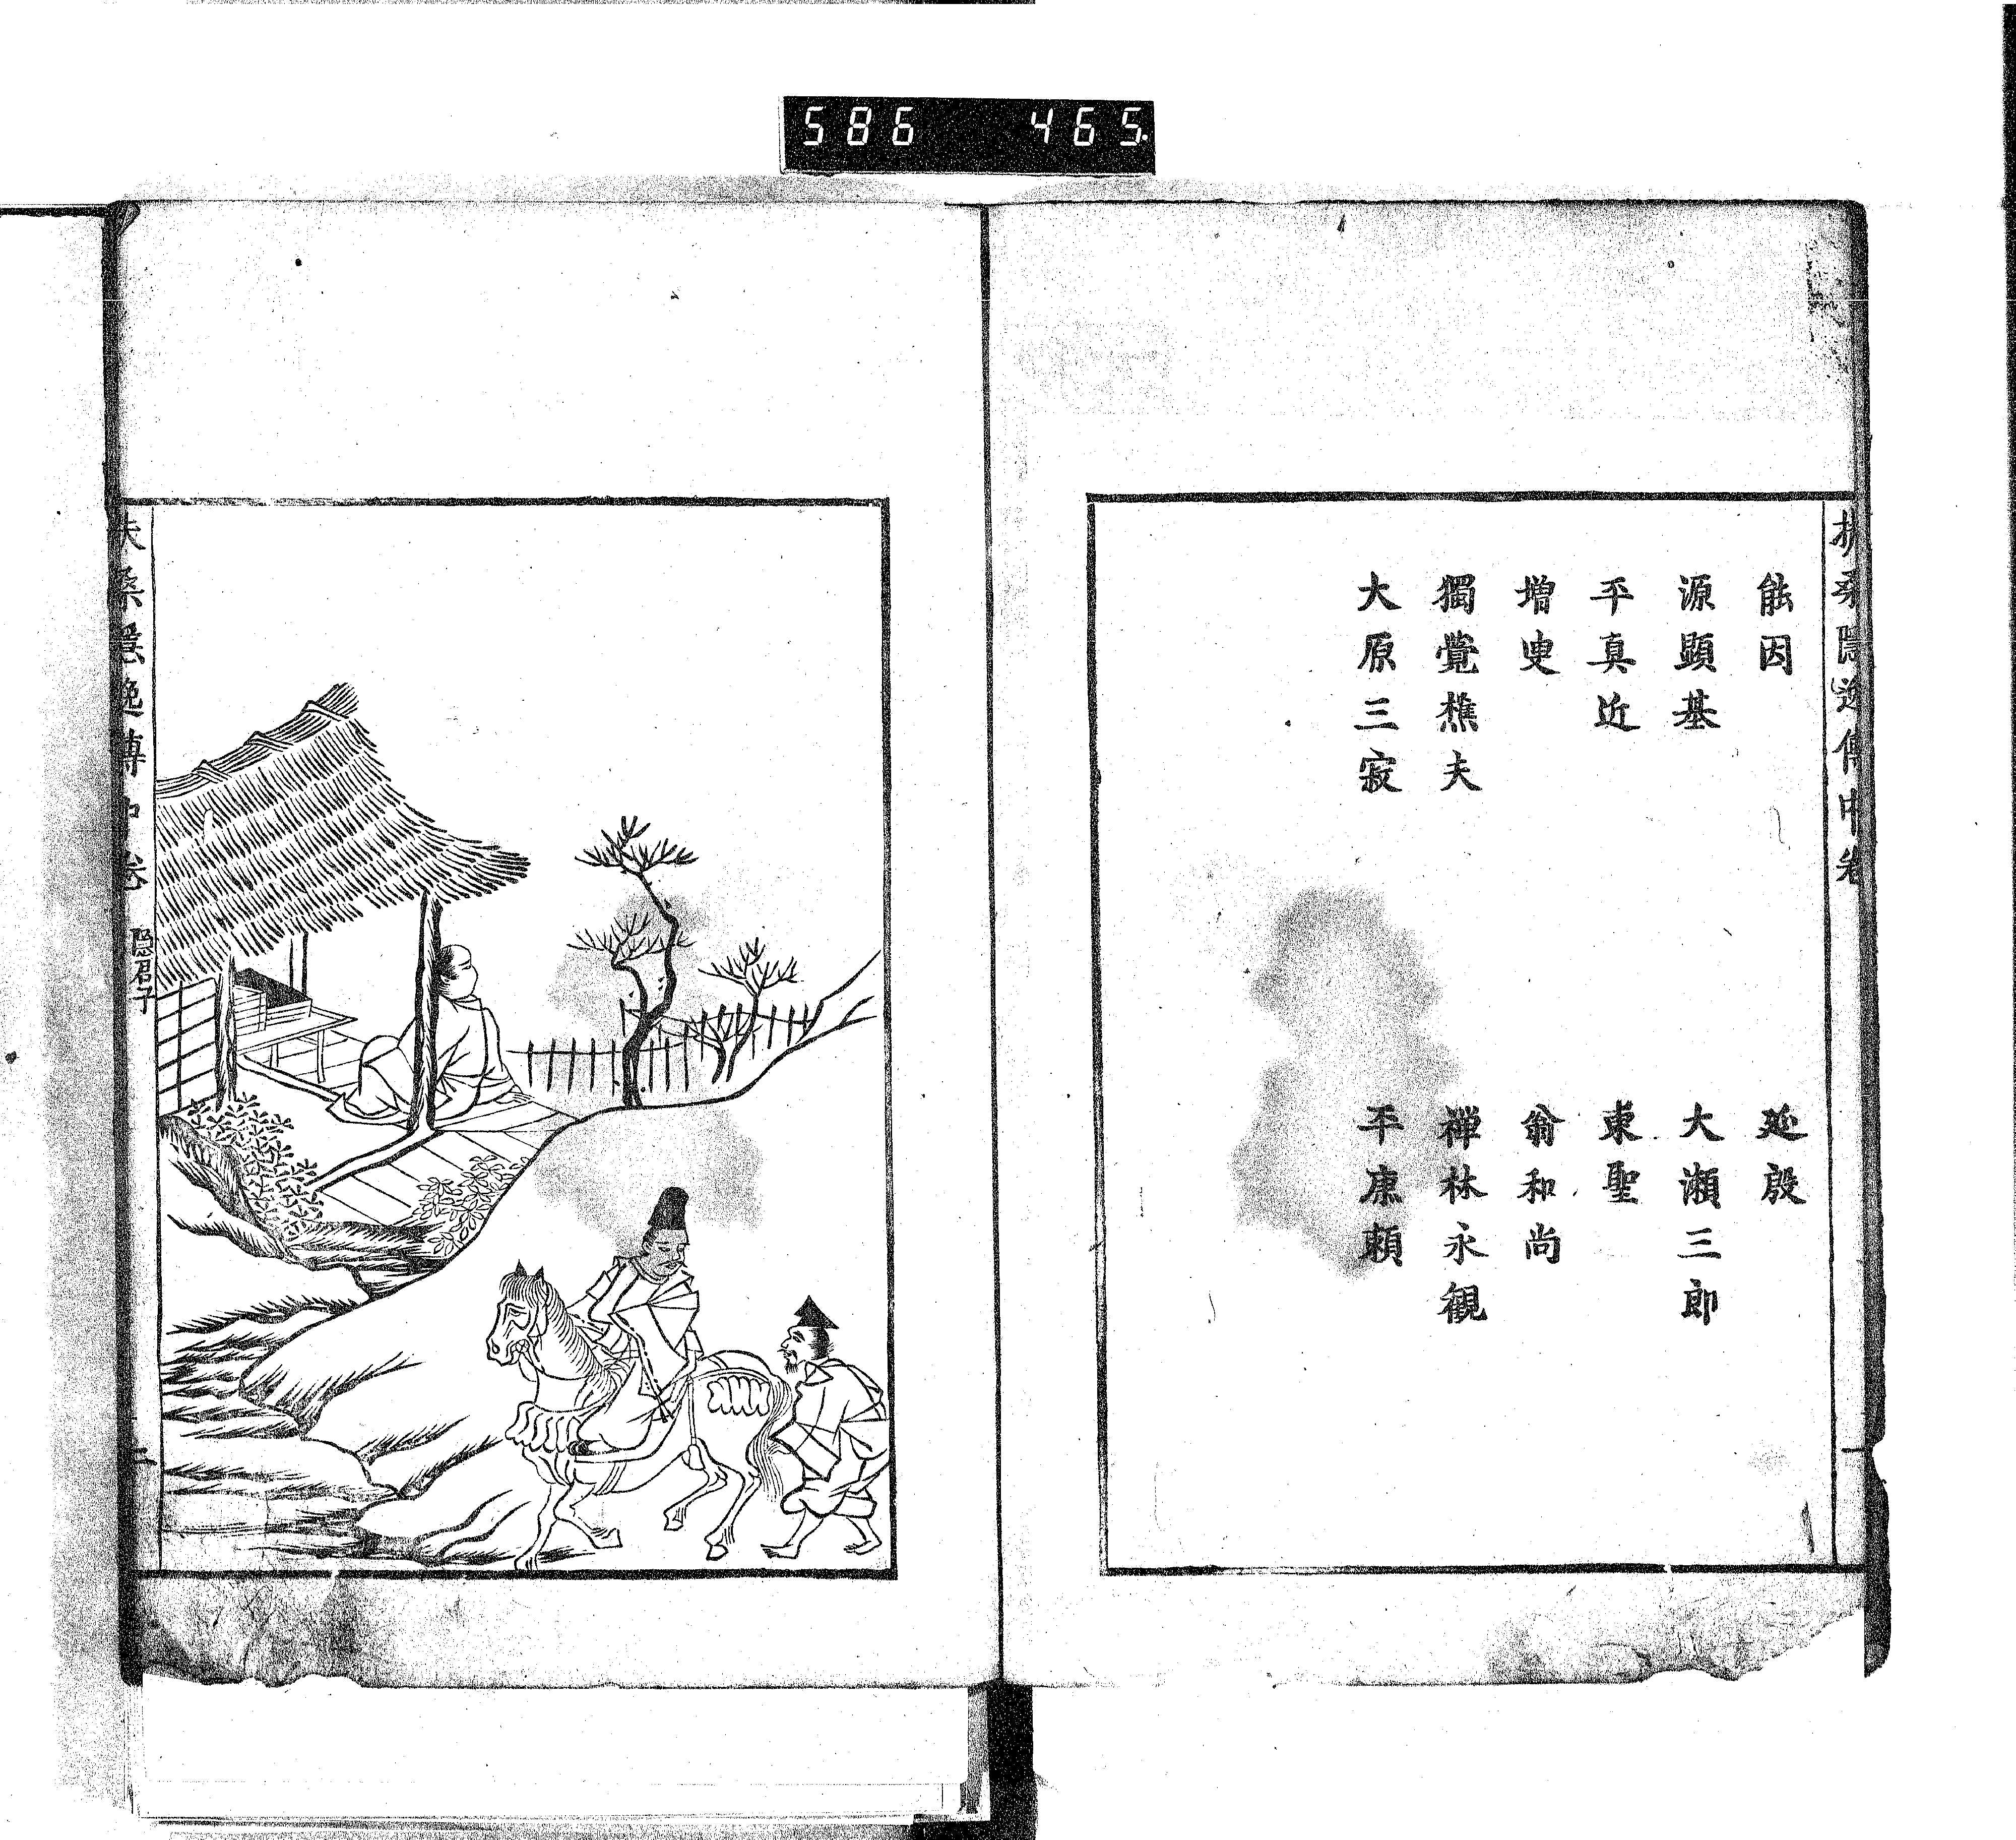 586 465.
扶桑隱逸傳中卷
能因
延殷
源顯基
大瀬三郎
平真近
東聖
増叟
翁和尚
獨覺樵夫
禅林永観
大原三寂
平康頼
扶桑隱逸傳中卷 隠君子 二